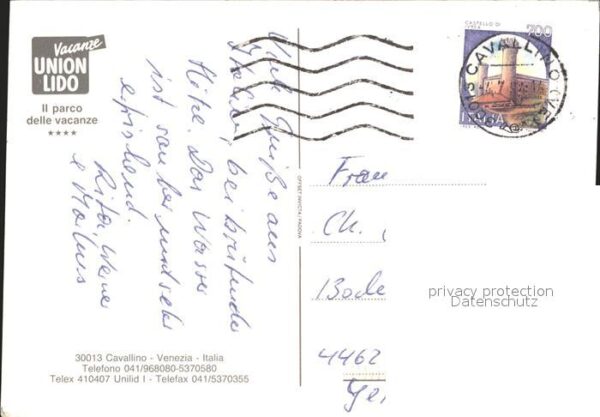 Vacanze
UNION
LIDO
Il parco
delle vacanze
★★★★
Viele Grüße aus
Italien, bei brütender
Hitze. Das Wasser
ist sauber und sehr
erfrischend.
Rita,
e Markus
30013 Cavallino - Venezia - Italia
Telefono 041/968080-5370580
Telex 410407 Unilid I - Telefax 041/5370355
OFFSET INVICTA - PADOVA
CASTELLO DI
700
ITALIA
CAVALLINO
Frau
Ch.,
Bode
4462
privacy protection
Datenschutz